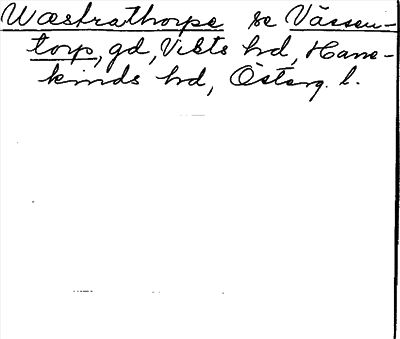 Wæstrathorpe se Vässen-
torp, gd, Vists hd, Hane-
kinds hd, Österg. l.